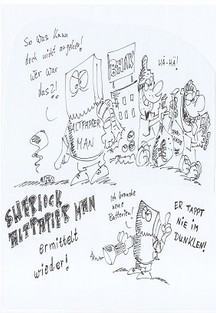 So was kann
doch nicht angehen!
Wer war
das?!
BANK
HÄ-HÄ!
ALTPAPIER
MAN
SHERLOCK
ALTPAPIER MAN
ermittelt
wieder!
Ich brauche
neue
Batterien!
ER TAPPT
NIE IM
DUNKLEN!